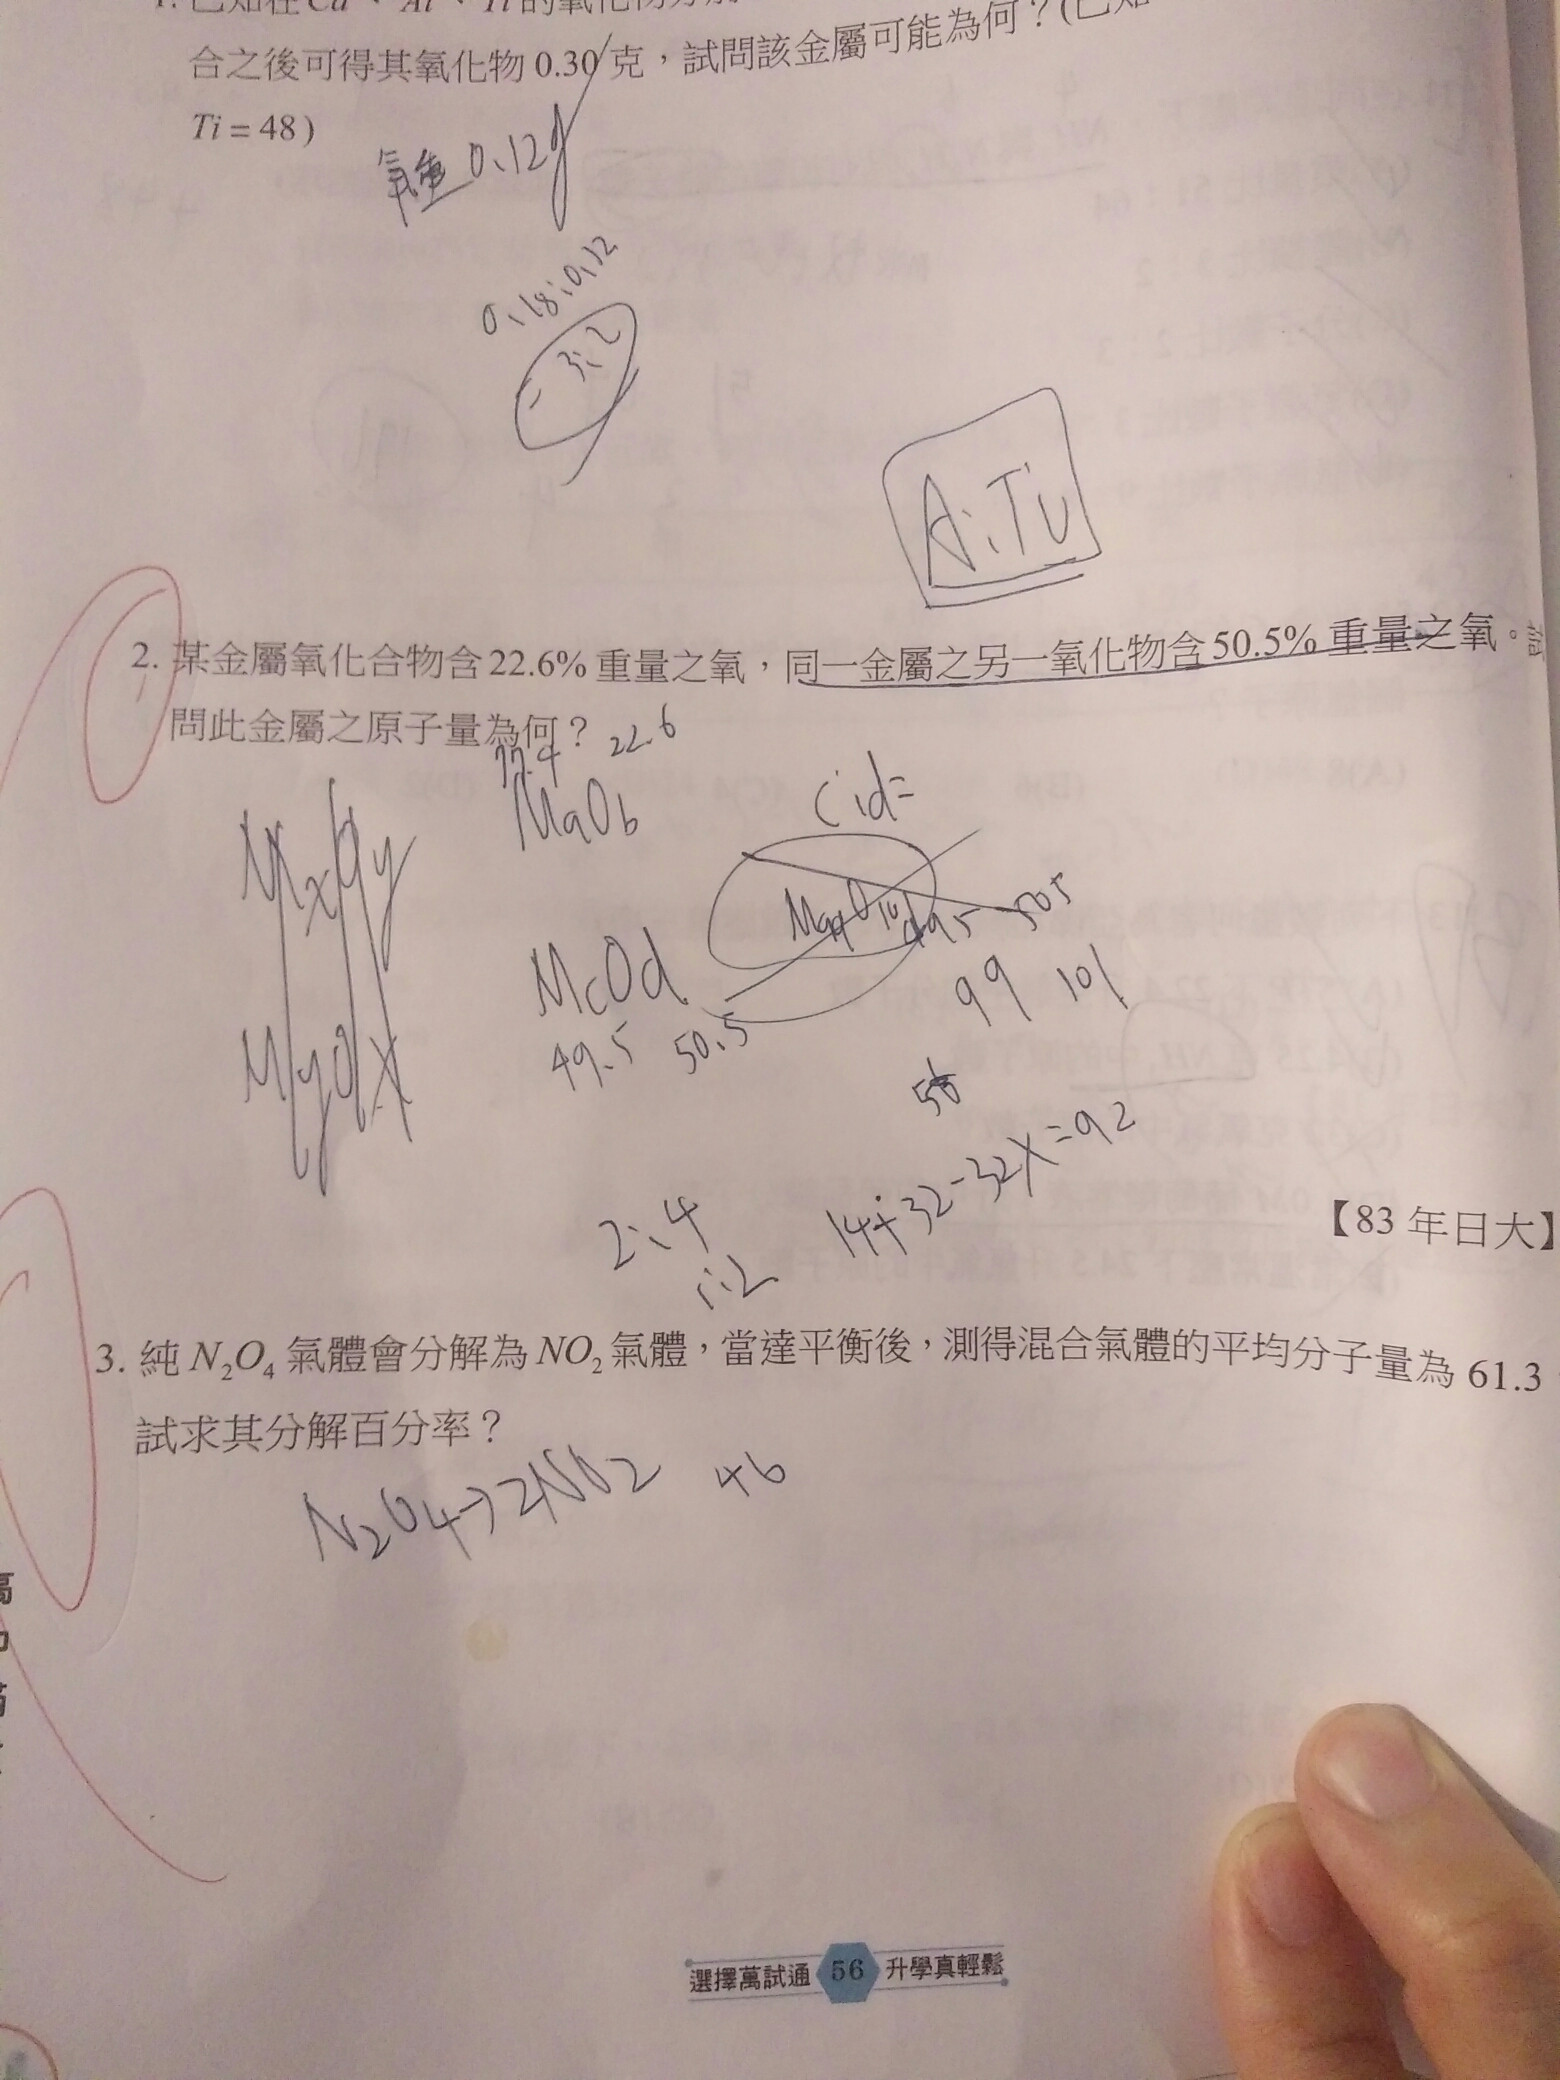 1. 已知在
合之後可得其氧化物 0.30 克，試問該金屬可能為何？(已知
Ti = 48)
氧重 0.12g
0.18:0.12
= 3:2
2. 某金屬氧化合物含 22.6% 重量之氧，同一金屬之另一氧化物含 50.5% 重量之氧。試
問此金屬之原子量為何？
77.4 22.6
MaOb
c:d=
MxOy
McOd
49.5 50.5
49.5 50.5
99 101
MyOx
56
2:4
1:2
14+32-32x=92
【83 年日大】
3. 純 N₂O₄ 氣體會分解為 NO₂ 氣體，當達平衡後，測得混合氣體的平均分子量為 61.3
試求其分解百分率？
N₂O₄→2NO₂ 46
選擇萬試通 56 升學真輕鬆